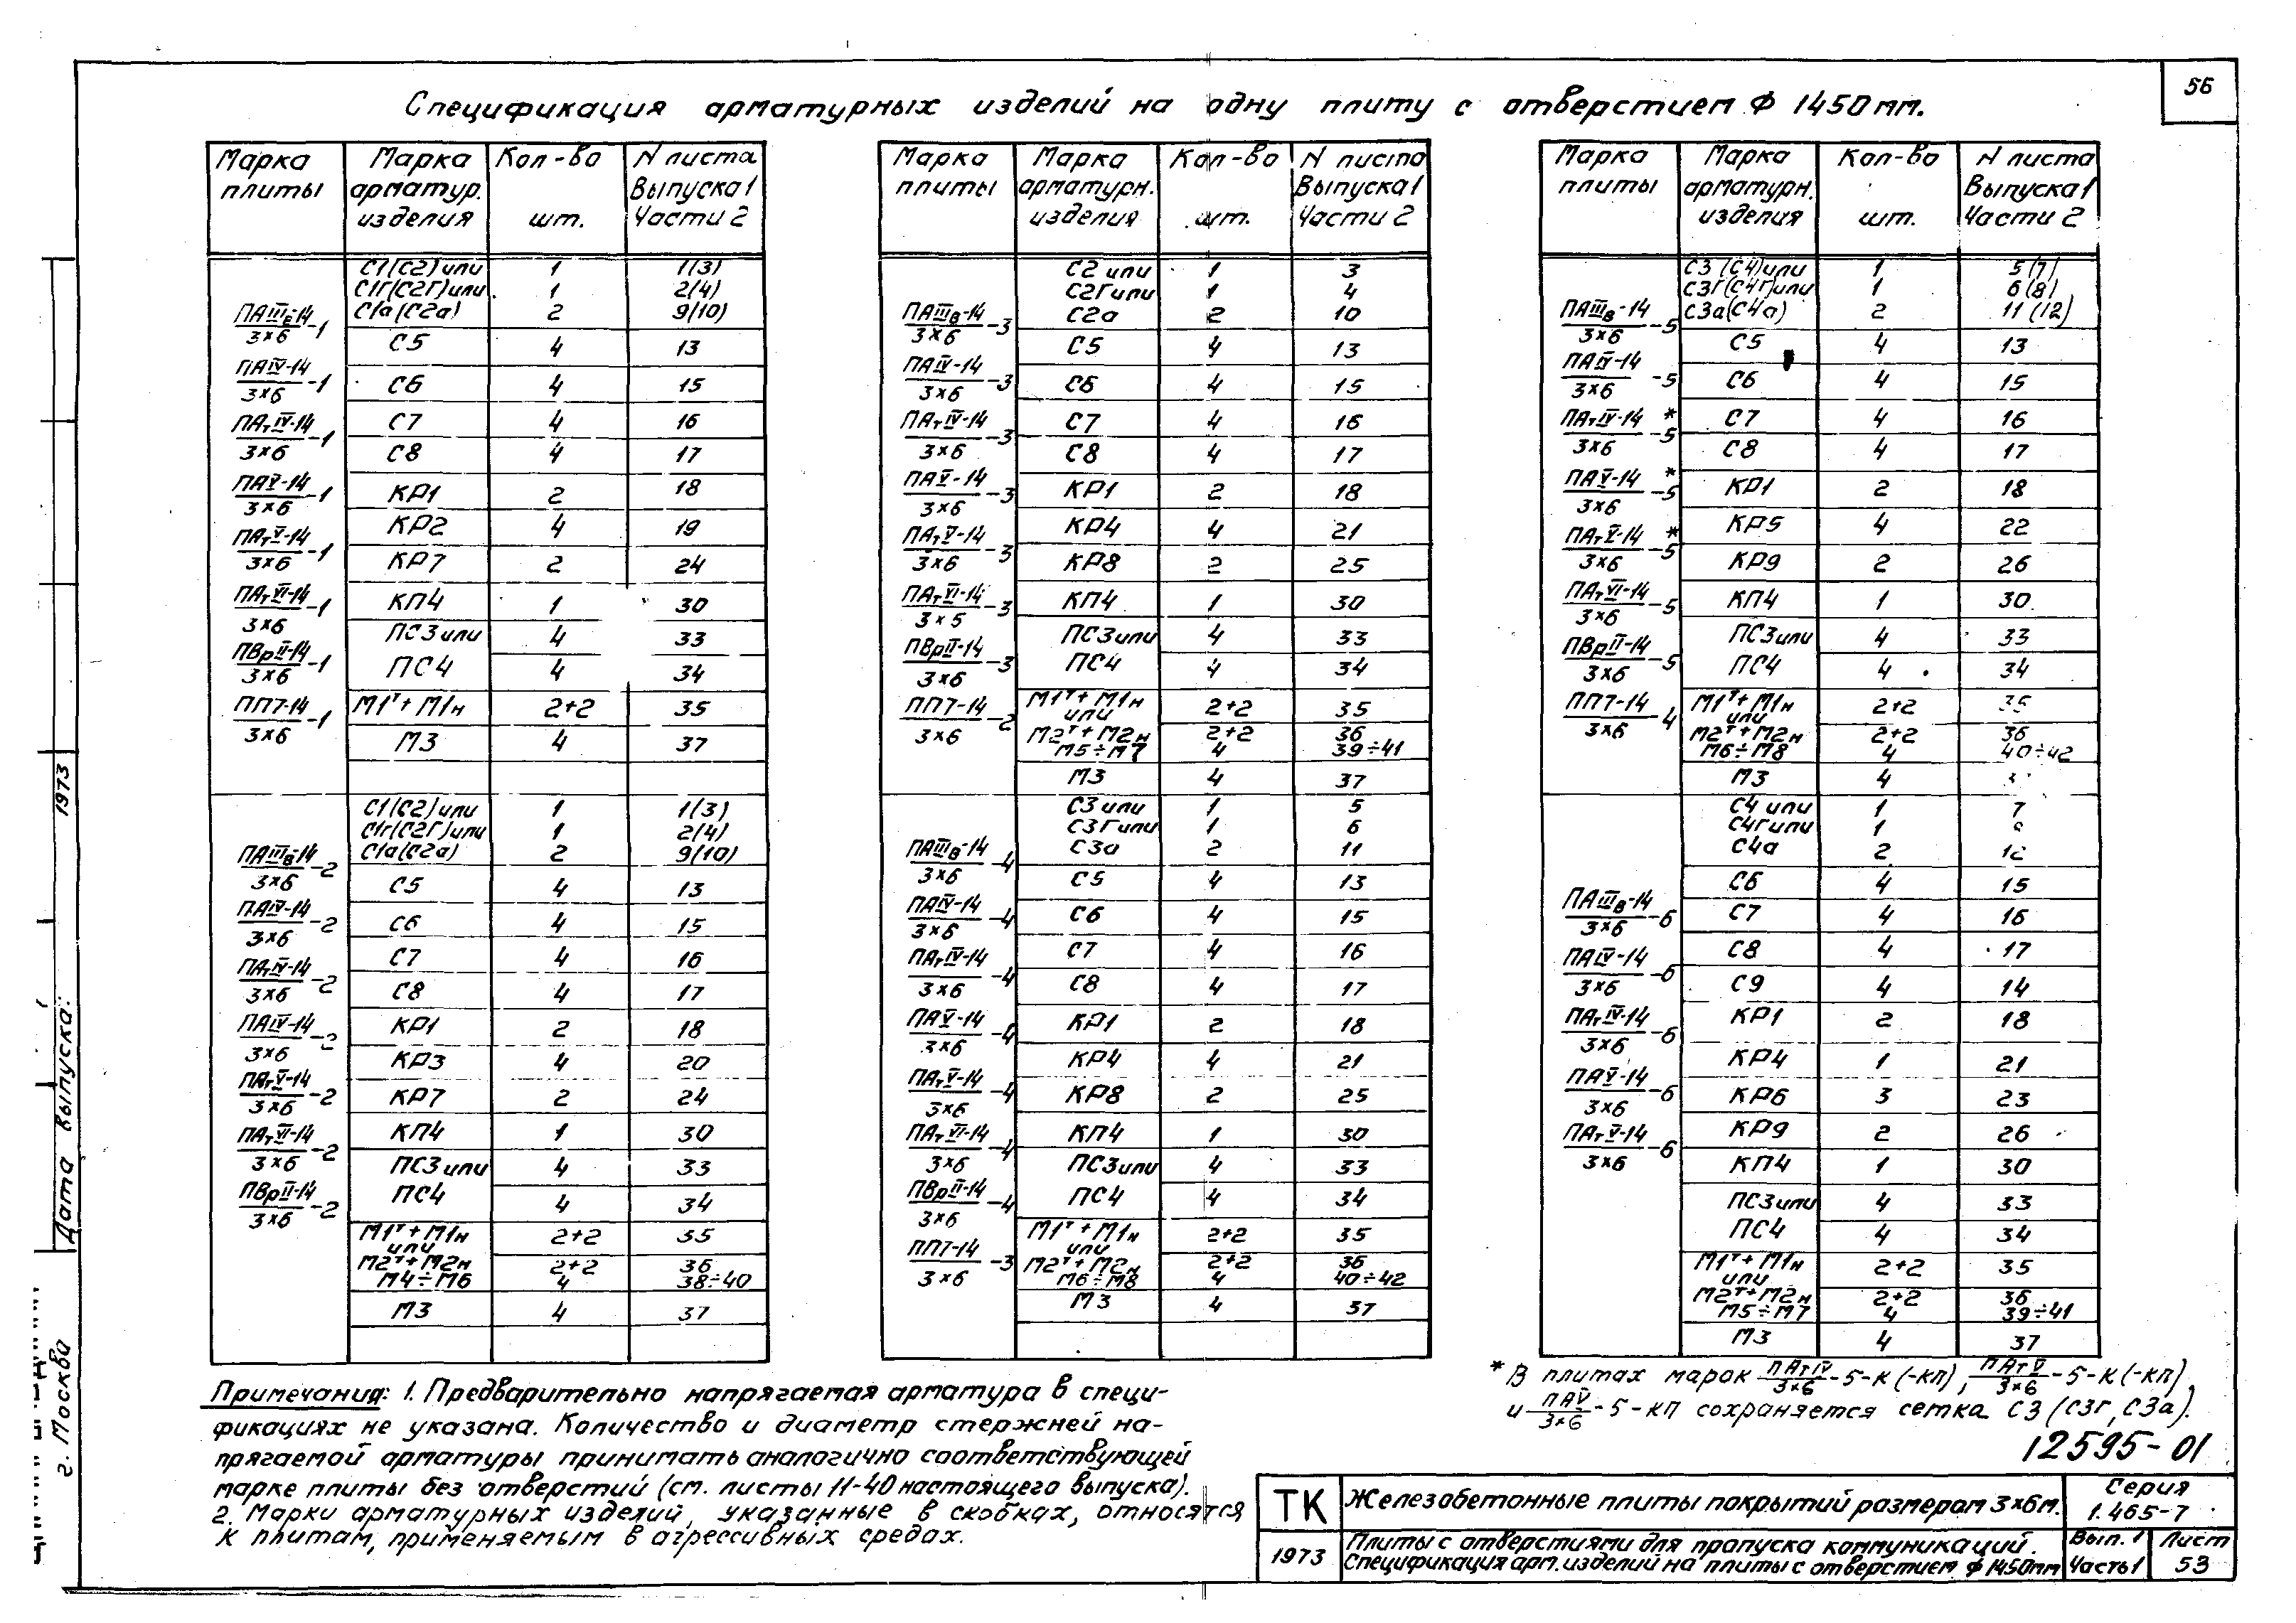 56
Спецификация арматурных изделий на одну плиту с отверстием Ф 1450мм.
Марка плиты | Марка арматур. изделия | Кол-во шт. | N листа Выпуска 1 Части 2
ПАIIIв-14/3×6-1
ПАIV-14/3×6-1
ПАтIV-14/3×6-1
ПАV-14/3×6-1
ПАтV-14/3×6-1
ПАтVI-14/3×6-1
ПВрII-14/3×6-1
ПП7-14/3×6-1
С1(С2)или 1 1(3)
С1Г(С2Г)или 1 2(4)
С1а(С2а) 2 9(10)
С5 4 13
С6 4 15
С7 4 16
С8 4 17
КР1 2 18
КР2 4 19
КР7 2 24
КП4 1 30
ПС3или 4 33
ПС4 4 34
М1т+М1н 2+2 35
М3 4 37
ПАIIIв-14/3×6-2
ПАIV-14/3×6-2
ПАтIV-14/3×6-2
ПАIV-14/3×6-2
ПАтV-14/3×6-2
ПАтVI-14/3×6-2
ПВрII-14/3×6-2
С1(С2)или 1 1(3)
С1г(С2Г)или 1 2(4)
С1а(С2а) 2 9(10)
С5 4 13
С6 4 15
С7 4 16
С8 4 17
КР1 2 18
КР3 4 20
КР7 2 24
КП4 1 30
ПС3или 4 33
ПС4 4 34
М1т+М1н 2+2 35
или
М2т+М2н 2+2 36
М4÷М6 4 38÷40
М3 4 37
Марка плиты | Марка арматурн. изделия | Кол-во шт. | N листа Выпуска 1 Части 2
ПАIIIв-14/3×6-3
ПАIV-14/3×6-3
ПАтIV-14/3×6-3
ПАV-14/3×6-3
ПАтV-14/3×6-3
ПАтVI-14/3×5-3
ПВрII-14/3×6-3
ПП7-14/3×6-2
С2 или 1 3
С2Гили 1 4
С2а 2 10
С5 4 13
С6 4 15
С7 4 16
С8 4 17
КР1 2 18
КР4 4 21
КР8 2 25
КП4 1 30
ПС3или 4 33
ПС4 4 34
М1т+М1н 2+2 35
или
М2т+М2н 2+2 36
М5÷М7 4 39÷41
М3 4 37
ПАIIIв-14/3×6-4
ПАIV-14/3×6-4
ПАтIV-14/3×6-4
ПАV-14/3×6-4
ПАтV-14/3×6-4
ПАтVI-14/3×6-4
ПВрII-14/3×6-4
ПП7-14/3×6-3
С3или 1 5
С3Гили 1 6
С3а 2 11
С5 4 13
С6 4 15
С7 4 16
С8 4 17
КР1 2 18
КР4 4 21
КР8 2 25
КП4 1 30
ПС3или 4 33
ПС4 4 34
М1т+М1н 2+2 35
или
М2т+М2н 2+2 36
М6÷М8 4 40÷42
М3 4 37
Марка плиты | Марка арматурн. изделия | Кол-во шт. | N листа Выпуска 1 Части 2
ПАIIIв-14/3×6-5
ПАIV-14/3×6-5
ПАтIV-14/3×6-5*
ПАV-14/3×6-5*
ПАтV-14/3×6-5*
ПАтVI-14/3×6-5
ПВрII-14/3×6-5
ПП7-14/3×6-4
С3(С4)или 1 5(7)
С3Г(С4Г)или 1 6(8)
С3а(С4а) 2 11(12)
С5 4 13
С6 4 15
С7 4 16
С8 4 17
КР1 2 18
КР5 4 22
КР9 2 26
КП4 1 30
ПС3или 4 33
ПС4 4 34
М1т+М1н 2+2 35
или
М2т+М2н 2+2 36
М6÷М8 4 40÷42
М3 4
ПАIIIв-14/3×6-6
ПАIV-14/3×6-6
ПАтIV-14/3×6-6
ПАV-14/3×6-6
ПАтV-14/3×6-6
С4 или 1 7
С4Гили 1
С4а 2 12
С6 4 15
С7 4 16
С8 4 17
С9 4 14
КР1 2 18
КР4 1 21
КР6 3 23
КР9 2 26
КП4 1 30
ПС3или 4 33
ПС4 4 34
М1т+М1н 2+2 35
или
М2т+М2н 2+2 36
М5÷М7 4 39÷41
М3 4 37
Примечания: 1. Предварительно напрягаемая арматура в специ-
фикациях не указана. Количество и диаметр стержней на-
прягаемой арматуры принимать аналогично соответствующей
марке плиты без отверстий (см. листы 11-40 настоящего выпуска).
2. Марки арматурных изделий, указанные в скобках, относятся
к плитам, применяемым в агрессивных средах.
* В плитах марок ПАтIV/3×6-5-К(-КП), ПАтV/3×6-5-К(-КП)
и ПАV/3×6-5-КП сохраняется сетка С3 (С3Г, С3а).
12595-01
ТК
Железобетонные плиты покрытий размером 3×6м.
Серия
1.465-7
1973
Плиты с отверстиями для пропуска коммуникаций.
Спецификация арм. изделий на плиты с отверстием Ф 1450мм
Вып. 1
Часть 1
Лист
53
1973
Дата выпуска:
г. Москва